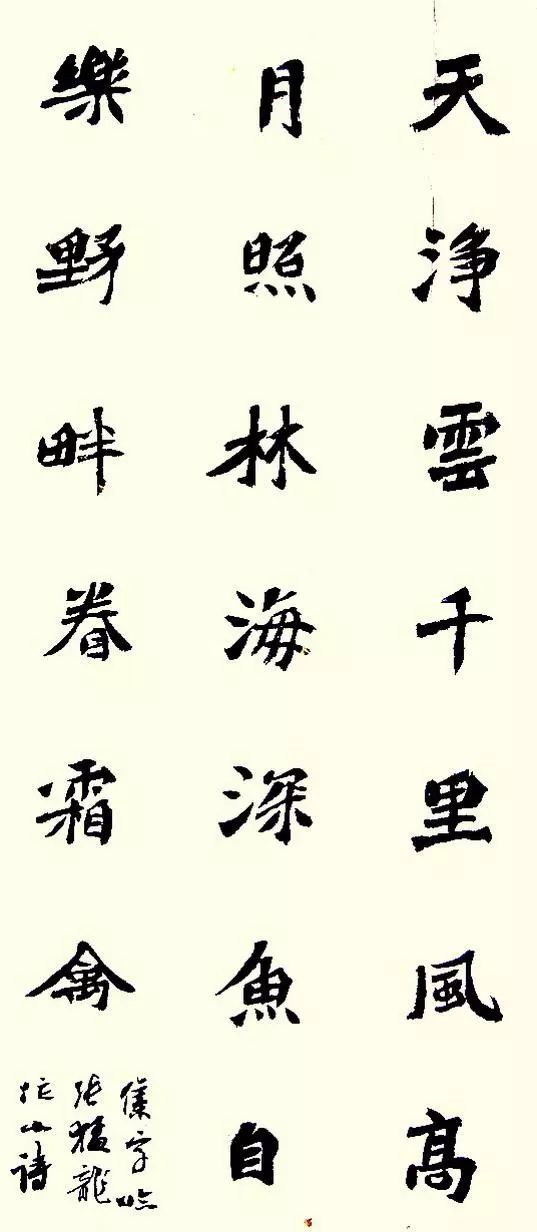 天浄雲千里風高
月照林海深魚自
樂野畔眷霜禽
集字臨
張猛龍
詩